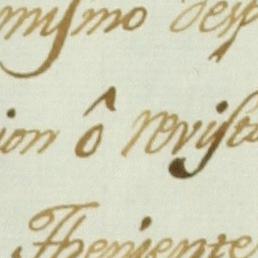 mismo desp
ion ô revista
Theniente